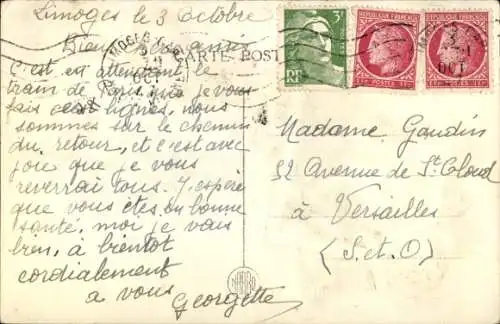 Limoges le 3 Octobre
Bien chers amis
C'est en attendant le
train de Paris que je vous
fais ces lignes, nous
sommes sur le chemin
du retour, et c'est avec
joie que je vous
reverrai tous. J'espère
que vous êtes en bonne
santé, moi je vais
bien, à bientôt
cordialement
à vous
Georgette
CARTE POST
3F
RF
RÉPUBLIQUE FRANÇAISE
POSTES 1F
RÉPUBLIQUE FRANÇAISE
POSTES 1F
LIMOGES
OCT
Madame Gaudin
52 Avenue de St Cloud
à Versailles
(S.et.O)